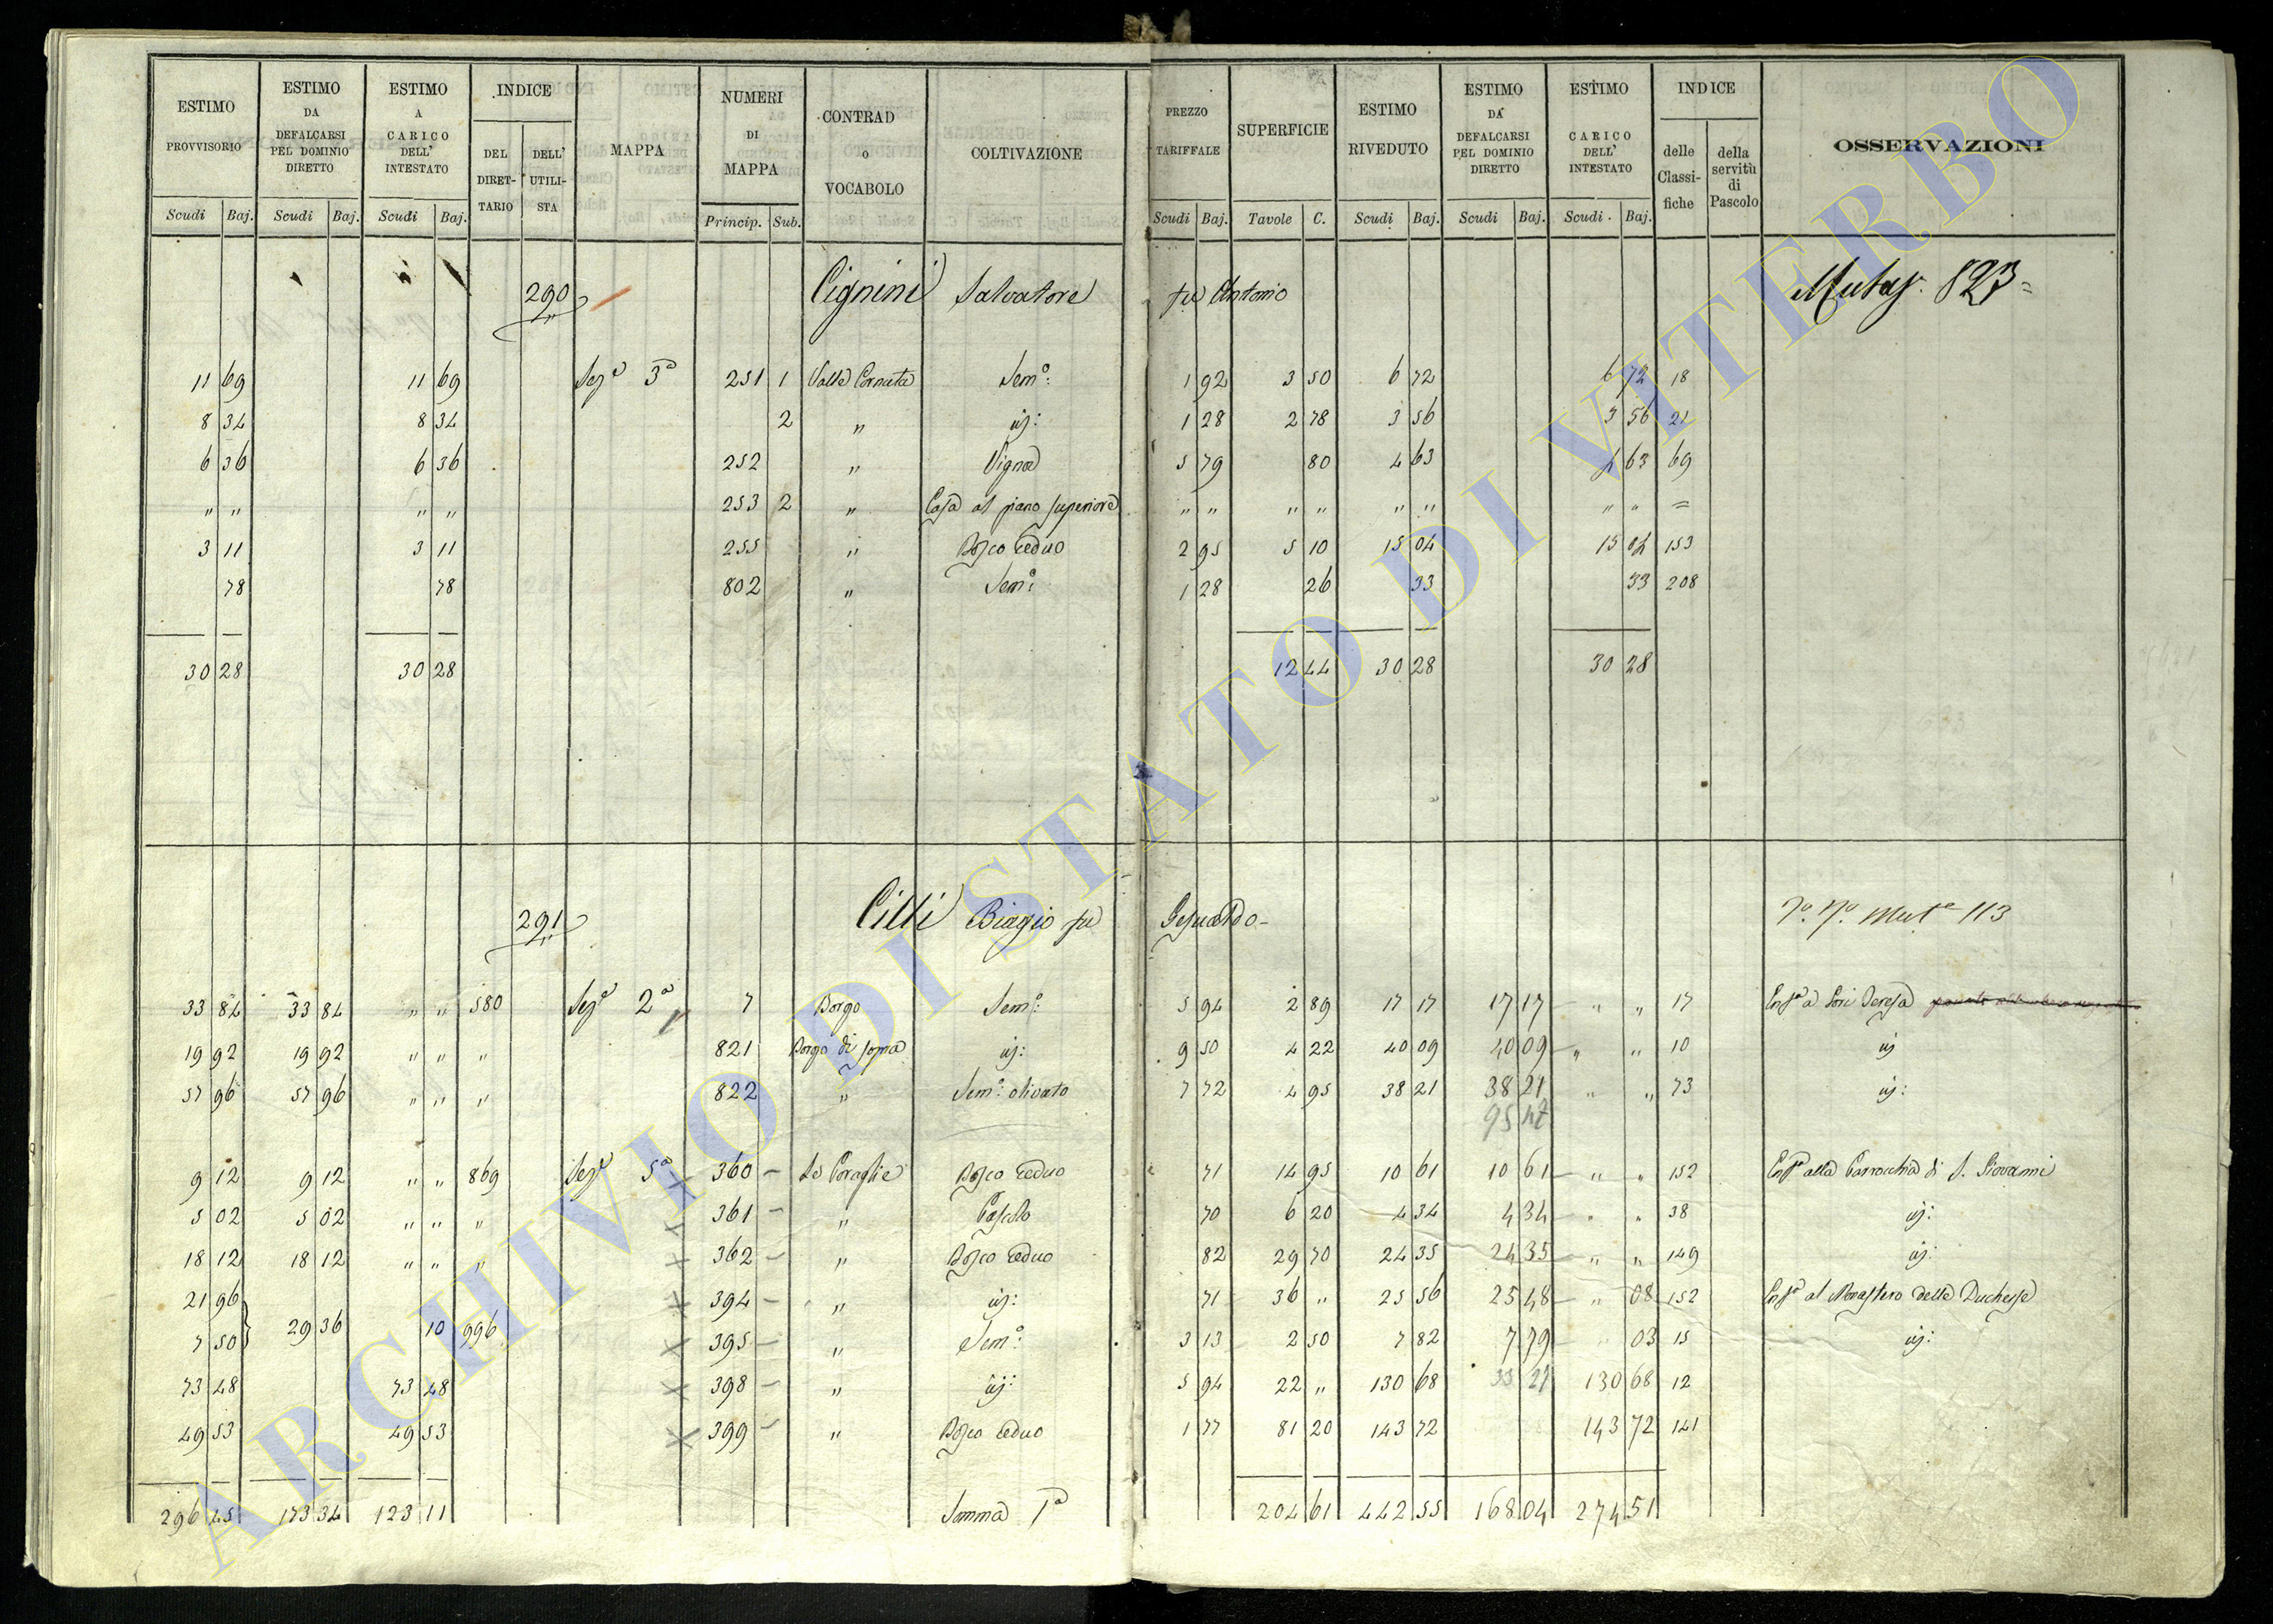 ESTIMO PROVVISORIO | ESTIMO DA DEFALCARSI PEL DOMINIO DIRETTO | ESTIMO A CARICO DELL' INTESTATO | INDICE | MAPPA | NUMERI DI MAPPA | CONTRAD o VOCABOLO | COLTIVAZIONE | PREZZO TARIFFALE | SUPERFICIE | ESTIMO RIVEDUTO | ESTIMO DA DEFALCARSI PEL DOMINIO DIRETTO | ESTIMO A CARICO DELL' INTESTATO | INDICE | OSSERVAZIONI
DEL DIRETTARIO | DELL' UTILISTA | delle Classifiche | della servitù di Pascolo
Scudi Baj. | Scudi Baj. | Scudi Baj. | Princip. Sub. | Scudi Baj. | Tavole C. | Scudi Baj. | Scudi Baj. | Scudi Baj.
290 Cignini Salvatore fu Antonio Mutaz. 823 =
11 69 | 11 69 | Sez.e 3a | 251 1 | Valle Cornuta | Sem.o: | 1 92 | 3 50 | 6 72 | 6 72 | 18
8 34 | 8 34 | 2 | " | id: | 1 28 | 2 78 | 3 56 | 3 56 | 21
6 36 | 6 36 | 252 | " | Vigna | 5 79 | 80 | 4 63 | 4 63 | 69
" " | " " | 253 2 | " | Casa al piano superiore | " " | " " | " " | " " | =
3 11 | 3 11 | 255 | " | Bosco ceduo | 2 95 | 5 10 | 15 04 | 15 04 | 153
78 | 78 | 802 | " | Sem.o: | 1 28 | 26 | 33 | 33 | 208
30 28 | 30 28 | 12 44 | 30 28 | 30 28
291 Cilli Biagio fu Gesualdo - Mut.e 113
33 84 | 33 84 | " " | 580 | Sez.e 2a | 7 | Borgo | Sem.o: | 5 94 | 2 89 | 17 17 | 17 17 | " " | 17 | Enf.a a Teresa
19 92 | 19 92 | " " | " | 821 | Borgo di sopra | id: | 9 50 | 4 22 | 40 09 | 40 09 | " " | 10 | id
57 96 | 57 96 | " " | " | 822 | " | Sem.o: olivato | 7 72 | 4 95 | 38 21 | 38 21 | " " | 73 | id:
95 47
9 12 | 9 12 | " " | 869 | Sez.e 5a | 360 | Le Coraglie | Bosco ceduo | 71 | 14 95 | 10 61 | 10 61 | " " | 152 | Enf.a alla Parrocchia di S. Giovanni
5 02 | 5 02 | " " | " | 361 | " | Pascolo | 70 | 6 20 | 4 34 | 4 34 | " " | 38 | id:
18 12 | 18 12 | " " | " | 362 | " | Bosco ceduo | 82 | 29 70 | 24 35 | 24 35 | " " | 149 | id:
21 96 | 394 | " | id: | 71 | 36 " | 25 56 | 25 48 | " 08 | 152 | Enf.a al Monastero della Duchessa
7 50 | 29 36 | 10 | 996 | 395 | " | Sem.o: | 3 13 | 2 50 | 7 82 | 7 79 | " 03 | 15 | id:
73 48 | 73 48 | 398 | " | id: | 5 94 | 22 " | 130 68 | 33 27 | 130 68 | 12
49 53 | 49 53 | 399 | " | Bosco ceduo | 1 77 | 81 20 | 143 72 | 143 72 | 141
296 45 | 173 34 | 123 11 | Somma 1a | 204 61 | 442 55 | 168 04 | 274 51
ARCHIVIO DI STATO DI VITERBO